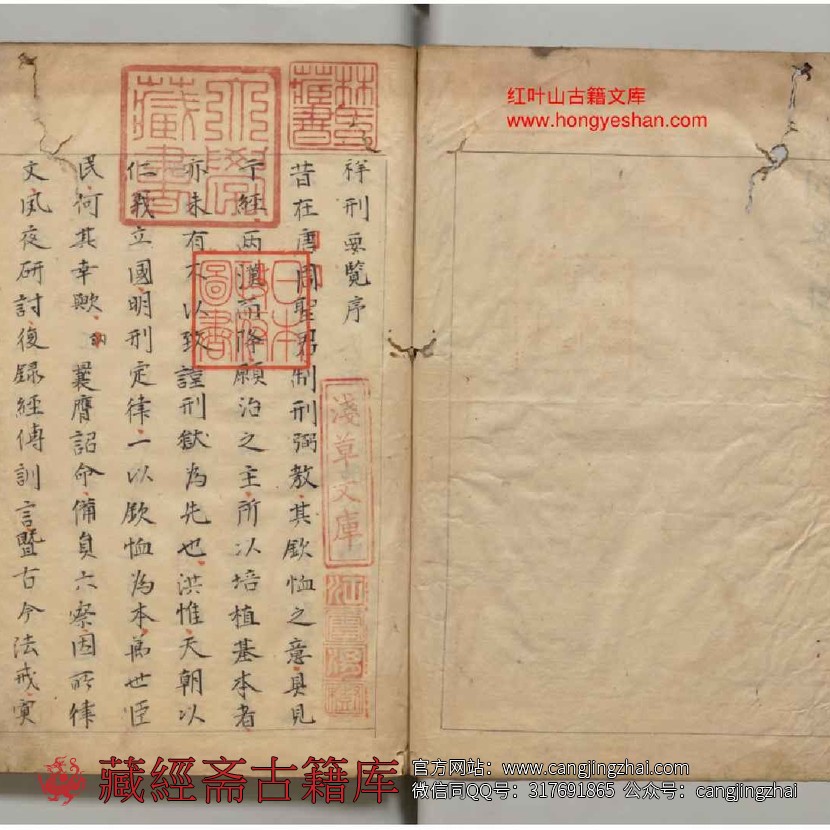 祥刑要覽序
昔在唐周聖君制刑弼教其欽恤之意具見
于經兩漢而降願治之主所以培植基本者
亦未有不以致謹刑獄為先也洪惟天朝以
仁義立國明刑定律一以欽恤為本萬世臣
民何其幸歟 訥 曩膺詔命備員六察因所律
文夙夜研討復錄經傳訓言暨古今法戒寘
林氏藏書
藏書
日本政府圖書
淺草文庫
江雲渭樹
红叶山古籍文库
www.hongyeshan.com
藏經斋古籍库
官方网站：www.cangjingzhai.com
微信同QQ号：317691865 公众号：cangjingzhai